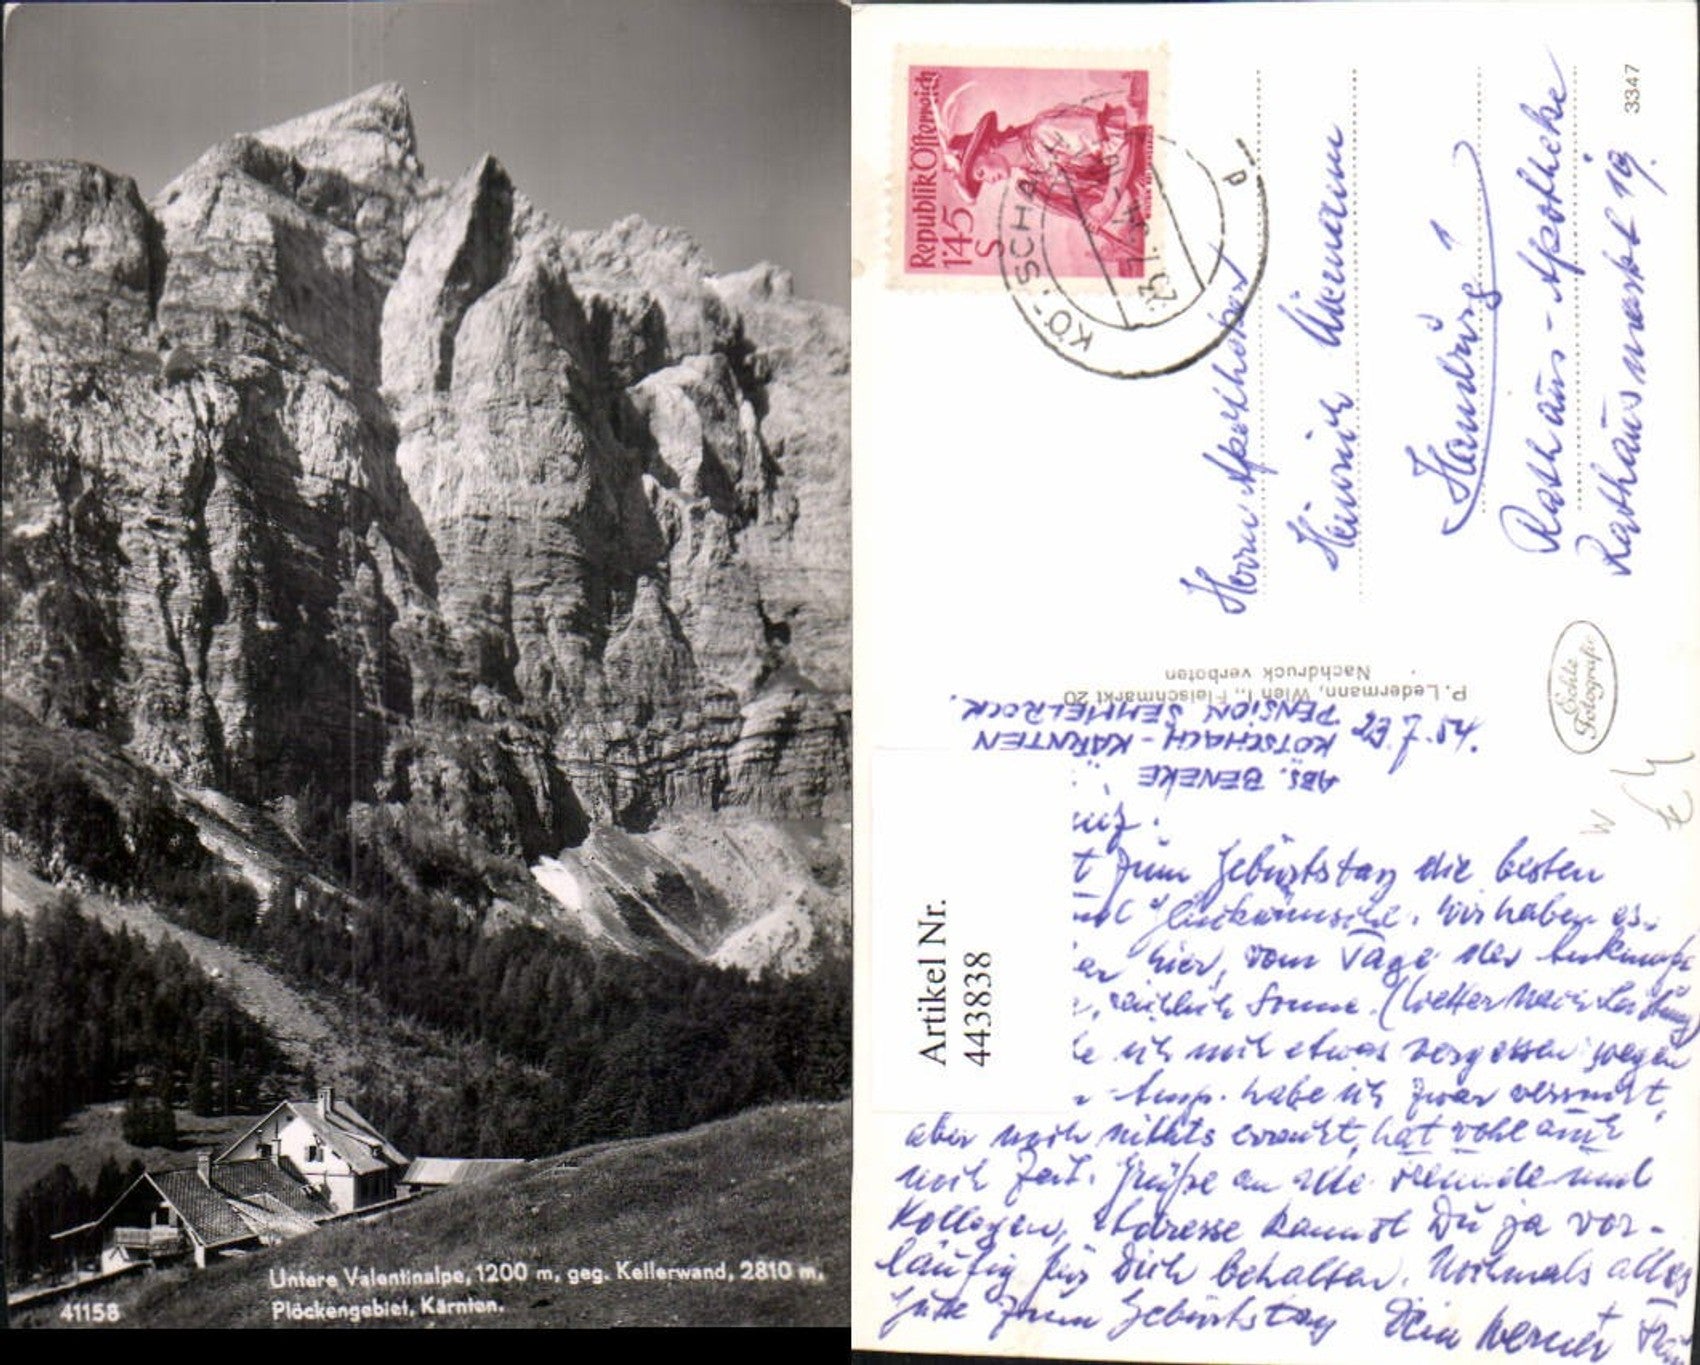 Untere Valentinalpe, 1200 m, geg. Kellerwand, 2810 m,
41158
Plöckengebiet, Kärnten.
Republik Österreich
1'45
S
KÖTSCHACH
3347
Herrn Apotheker
Heinrich
Hamburg 1
Rathaus-Apotheke
Rathausmarkt 19.
Echte
Fotografie
P. Ledermann, Wien I., Fleischmarkt 20
Nachdruck verboten
ABS. BENEKE
KÖTSCHACH-KÄRNTEN
PENSION SEMMELROCK.
Artikel Nr.
443838
t zum Geburtstag die besten
Glückwünsche. Wir haben es
hier, vom Tage der
Sonne.
ich mich etwas vergessen wegen
habe ich zwar versucht,
aber noch nichts erreicht, hat wohl auch
noch Zeit. Grüße an alle Freunde und
Kollegen, Adresse kannst Du ja vor-
läufig für Dich behalten. Nochmals alles
Gute zum Geburtstag Dein Werner